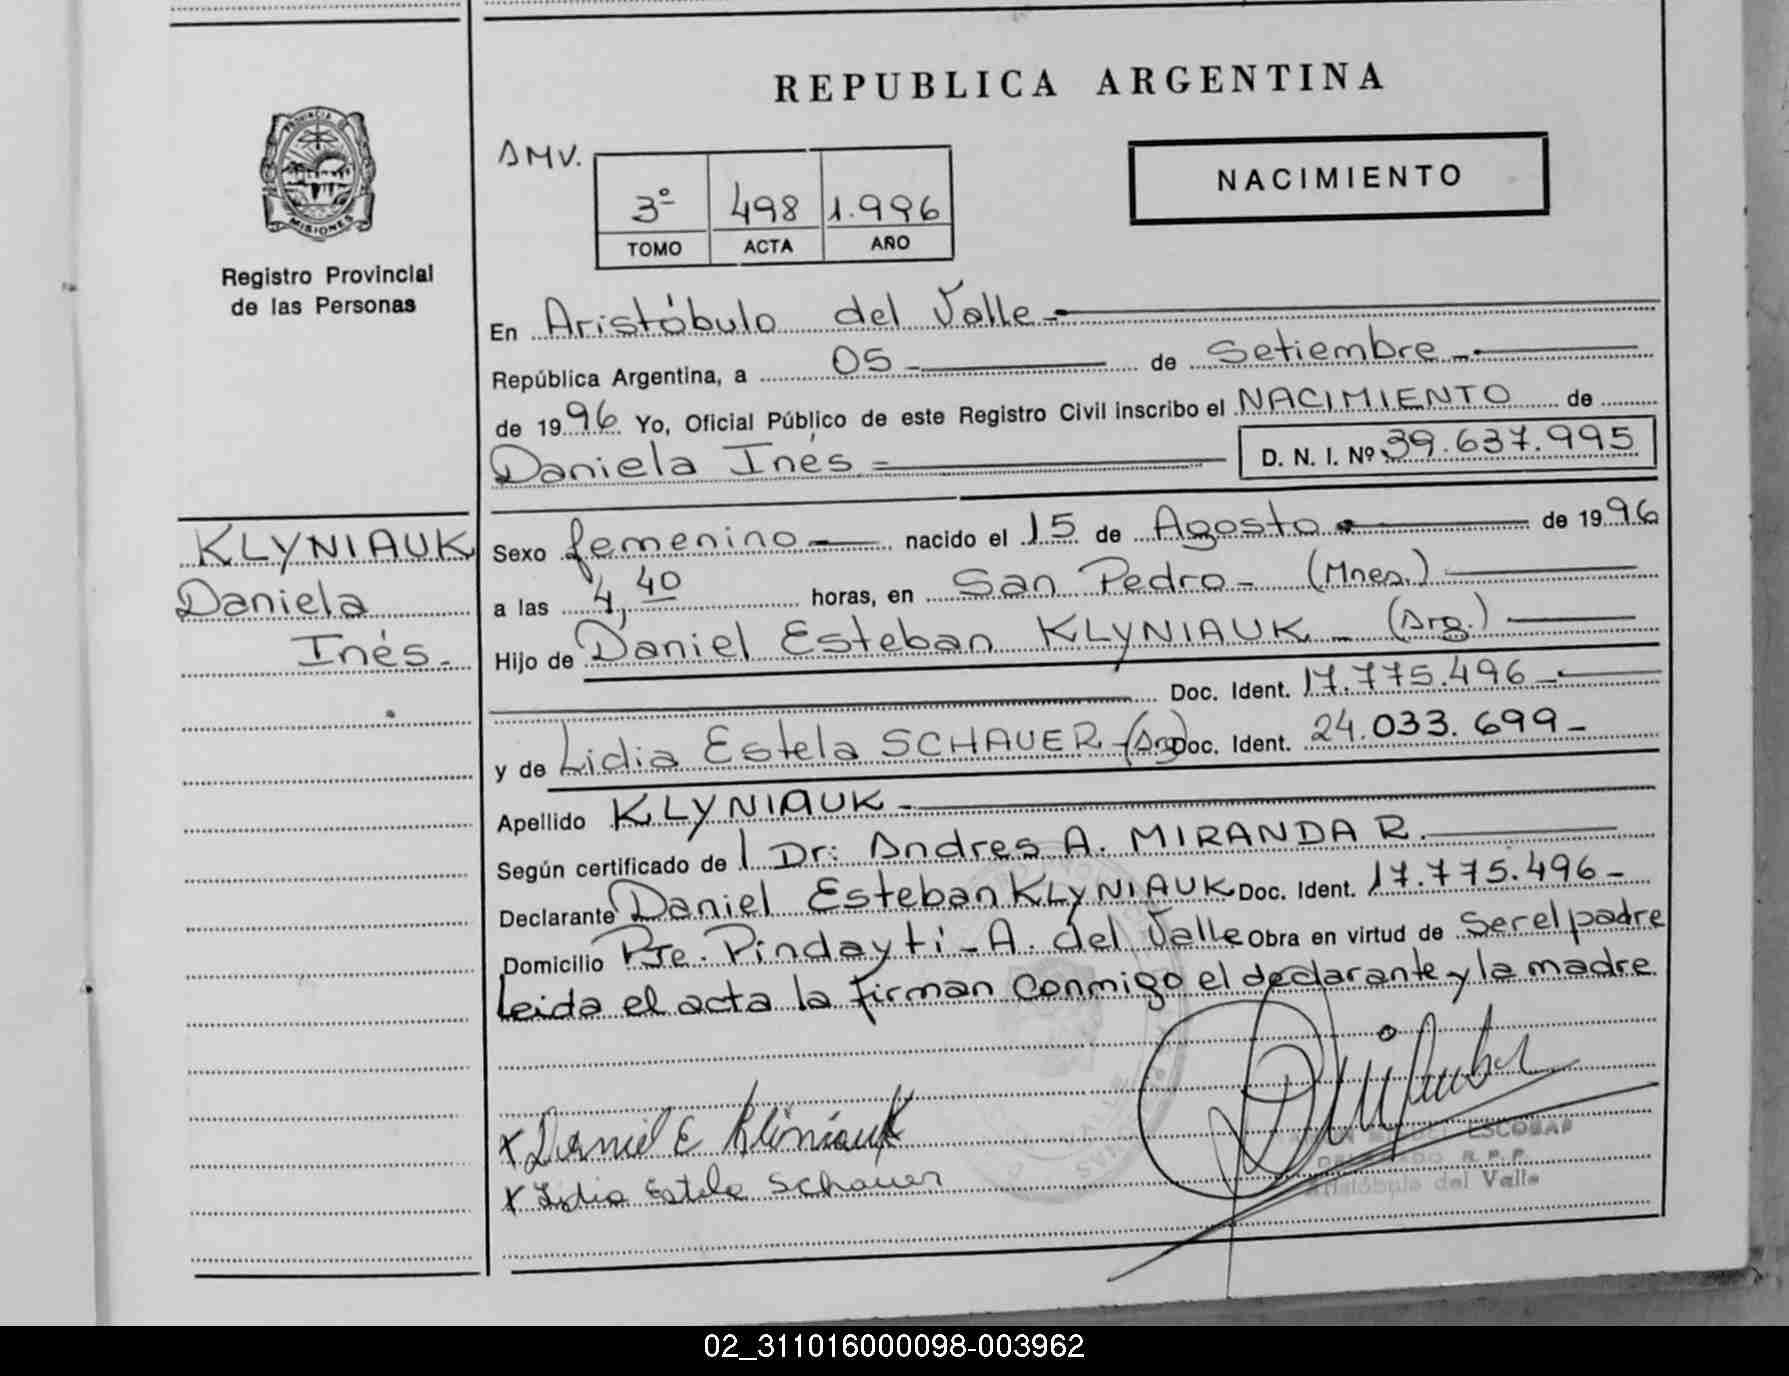 REPUBLICA ARGENTINA
PROVINCIA D
MISIONES
Registro Provincial
de las Personas
AMV.
3º 498 1.996
TOMO ACTA AÑO
NACIMIENTO
En Aristóbulo del Valle -
República Argentina, a 05 - de Setiembre -
de 1996 Yo, Oficial Público de este Registro Civil inscribo el NACIMIENTO de
Daniela Inés = D. N. I. Nº 39.637.995
KLYNIAUK
Daniela
Inés -
Sexo femenino - nacido el 15 de Agosto - de 1996
a las 4,40 horas, en San Pedro - (Mnes.)
Hijo de Daniel Esteban KLYNIAUK - (Arg.)
Doc. Ident. 17.775.496 -
y de Lidia Estela SCHAUER - (Arg) Doc. Ident. 24.033.699 -
Apellido KLYNIAUK -
Según certificado de Dr: Andres A. MIRANDA R.
Declarante Daniel Esteban KLYNIAUK Doc. Ident. 17.775.496 -
Domicilio Pje. Pindayti - A. del Valle Obra en virtud de ser el padre
Leida el acta la firman conmigo el declarante y la madre
x Daniel E Kliniauk
x Lidia Estela Schauer
ESCOBAR
R.P.P.
Aristóbulo del Valle
02_311016000098-003962